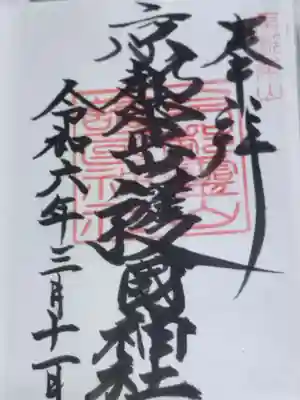 奉拝
京都霊山護國神社
令和六年三月十一日